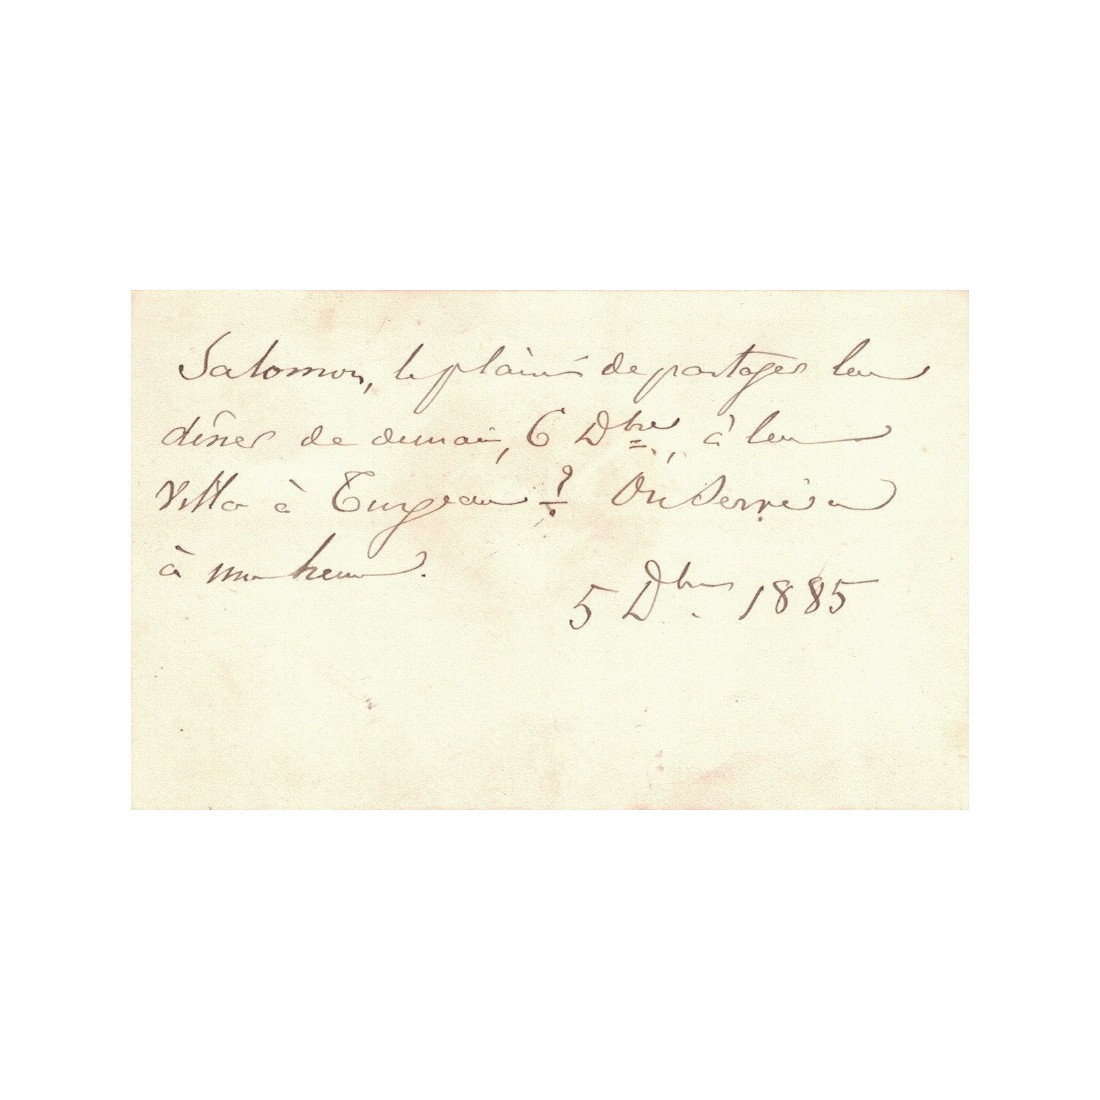 Salomon, le plaisir de partager leur
dîner de demain, 6 Dbre, à leur
villa à Turgeau ? On servira
à une heure.
5 Dbre 1885